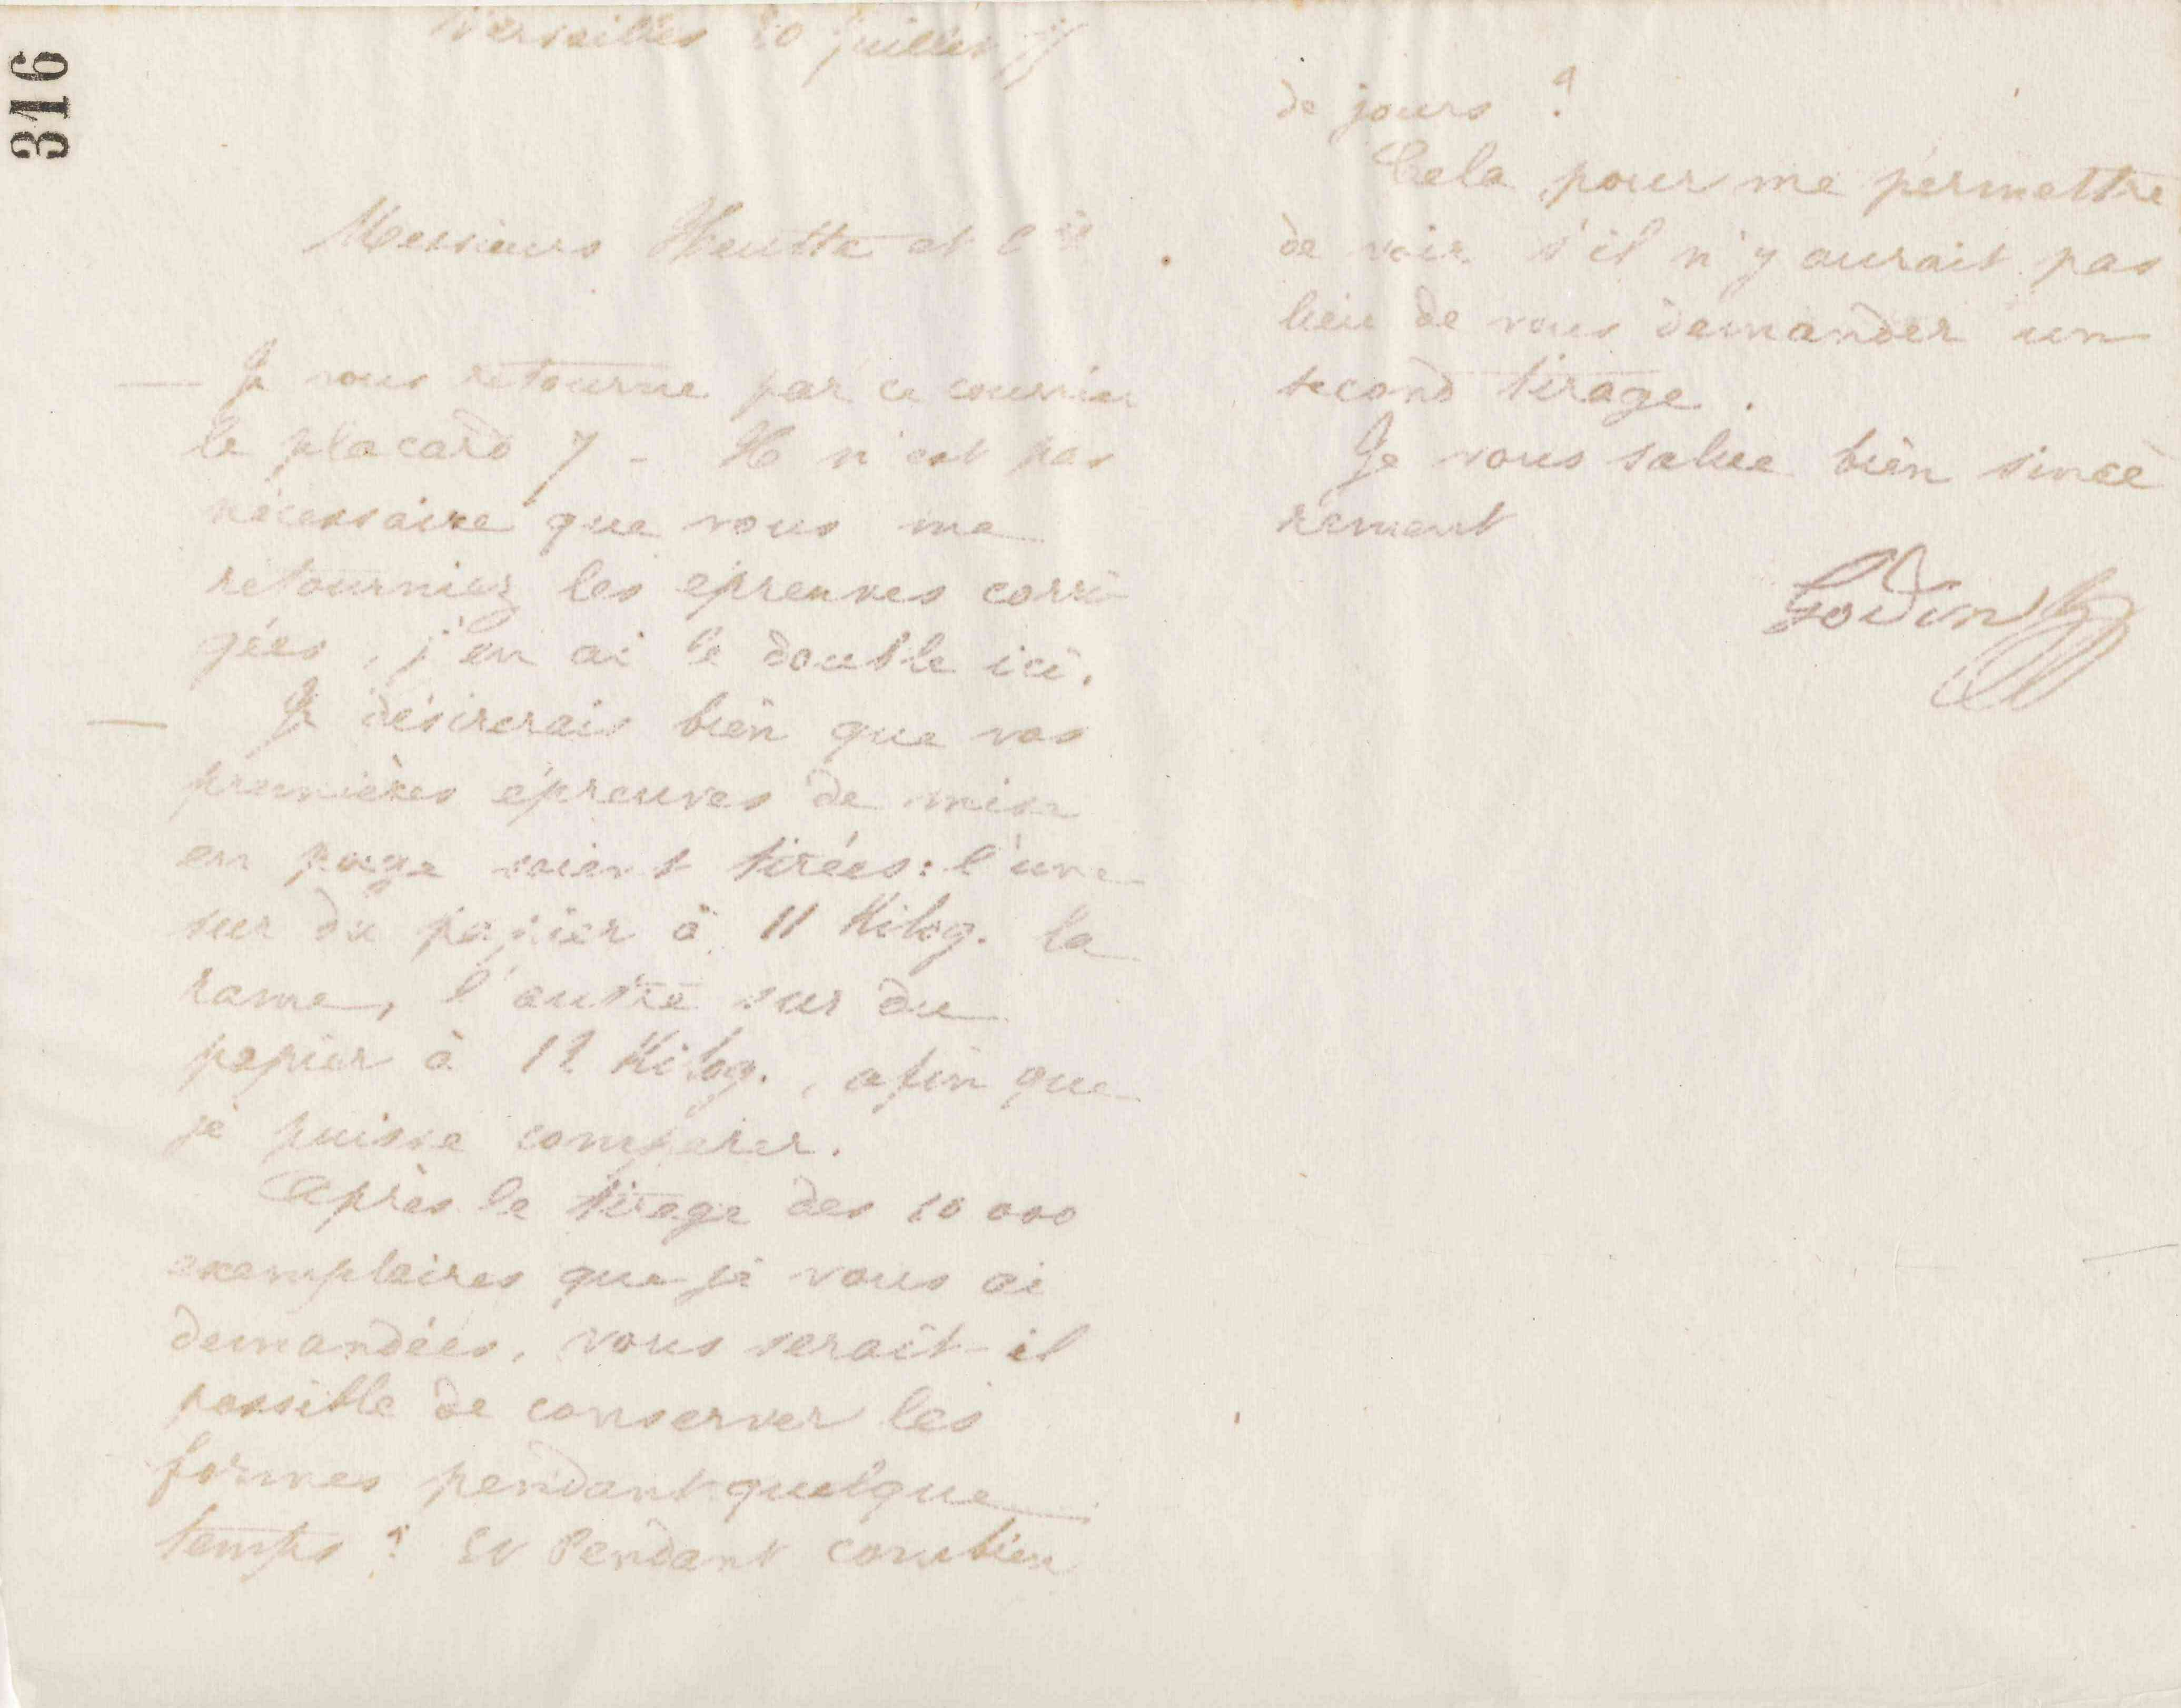 316
Versailles 20 juillet 75
Messieurs Heutte et Cie
— Je vous retourne par ce courrier
le placard 7 - Il n'est pas
nécessaire que vous me
retourniez les épreuves corri-
gées, j'en ai le double ici.
— Je désirerais bien que vos
premières épreuves de mise
en page soient tirées : l'une
sur du papier à 11 Kilog. la
rame, l'autre sur du
papier à 12 Kilog., afin que
je puisse comparer.
Après le tirage des 10 000
exemplaires que je vous ai
demandées, vous serait-il
possible de conserver les
formes pendant quelque
temps ? Et Pendant combien
de jours ?
Cela pour me permettre
de voir s'il n'y aurait pas
lieu de vous demander un
second tirage.
Je vous salue bien sincè
rement
Godin